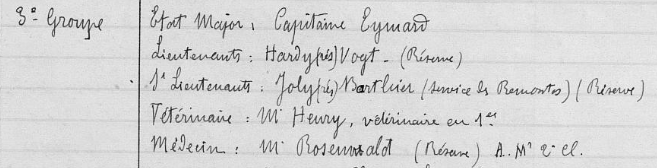 3e Groupe Etat Major : Capitaine Eymard
Lieutenants : Hardy (rés) Vogt - (Réserve)
S/ Lieutenants : Joly (rés) Barthier (Service des Remontes) (Réserve)
Vétérinaire : Mr Henry, vétérinaire en 1er
Médecin : Mr Rosenwald (Réserve) A. Mr 2e Cl.